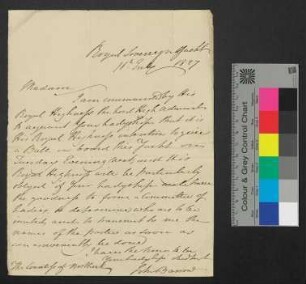 Royal Sovereign Yacht
11th July 1827
Madam
I am commanded by His
Royal Highness the Lord High Admiral
to acquaint your Ladyship that it is
His Royal Highness's intention to give
a Ball on board this Yacht on
Tuesday Evening next and His
Royal Highness will be particularly
obliged if your Ladyship will have
the goodness to form a Committee of
Ladies to determine who are to be
invited and to transmit to me the
names of the parties as soon as
can conveniently be done
I have the honor to be
your Ladyship's
The Countess of
Colour & Grey Control Chart